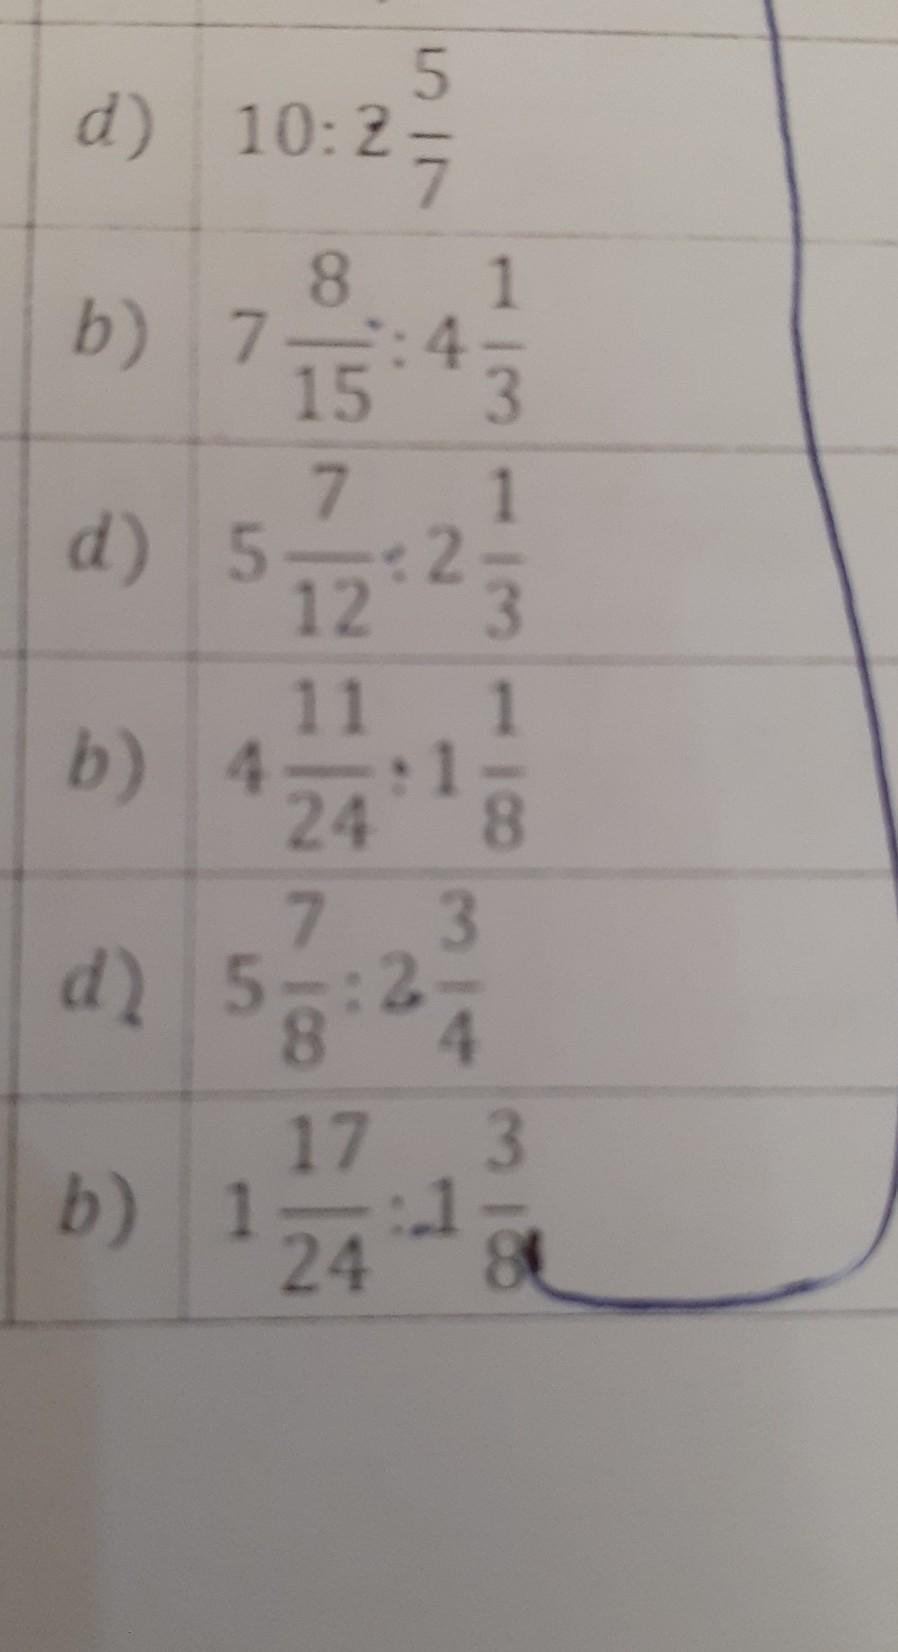 d) 10 : 2 5/7
b) 7 8/15 : 4 1/3
d) 5 7/12 : 2 1/3
b) 4 11/24 : 1 1/8
d) 5 7/8 : 2 3/4
b) 1 17/24 : 1 3/8